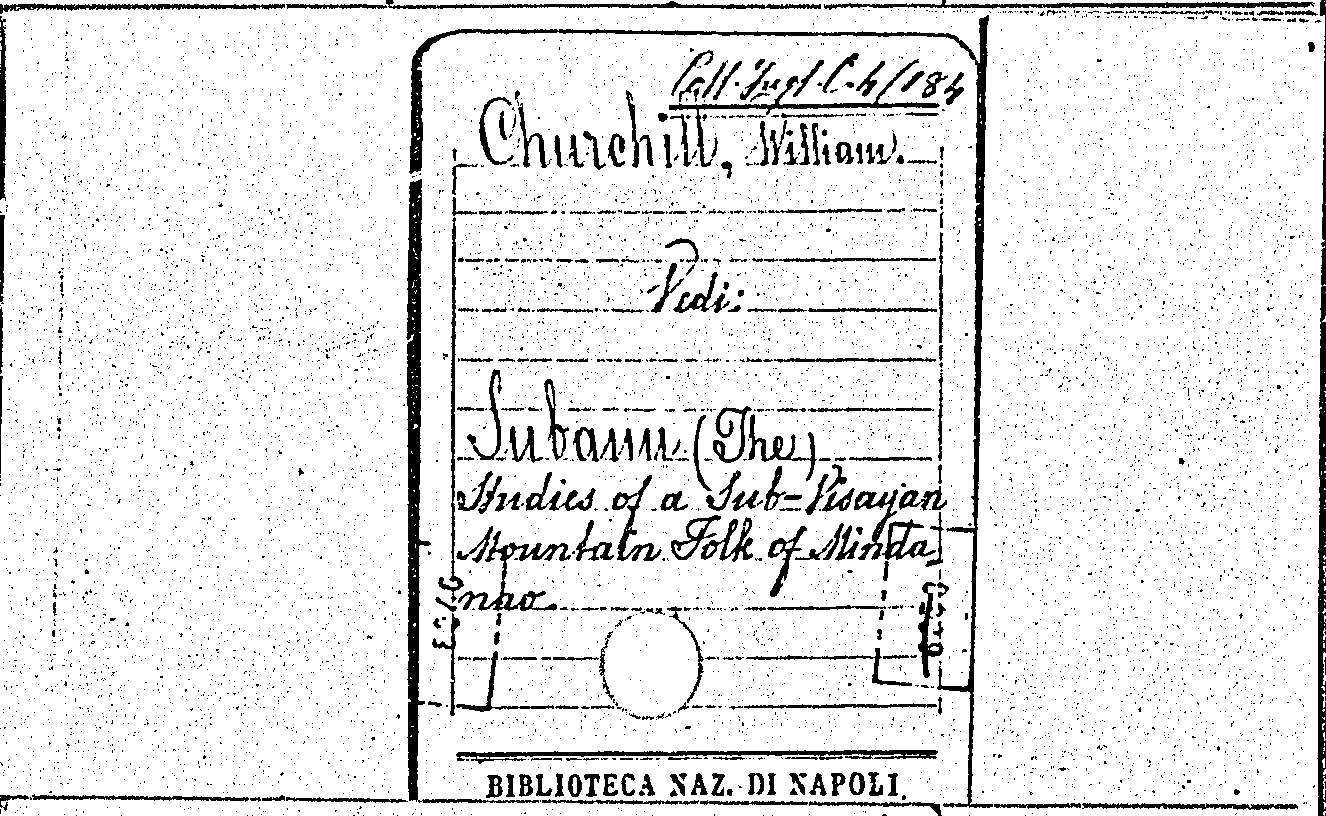 Coll. Ingl. C. 4/184
Churchill, William.
Vedi:
Subanu (The)
Studies of a Sub-Visayan
Mountain Folk of Minda,
nao.
BIBLIOTECA NAZ. DI NAPOLI.